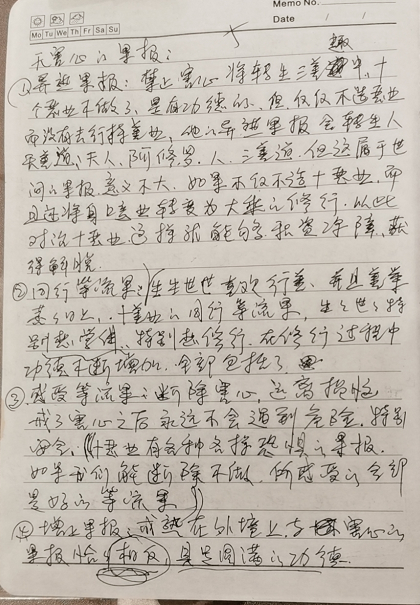 Memo No.
Mo Tu We Th Fr Sa Su
Date / /
无害心的果报：
趣
①异熟果报：禁止害心将转生三善中，十
个恶业不做了，是有功德的，但仅仅不造恶业
而没有去行持善业，他的异熟果报会转生人
天善道、天人、阿修罗、人，三善道，但这属于世
间的果报意义不大。如果不仅不造十恶业，而
且还将身口意业转变为大乘的修行，以此
对治十恶业，这样就能够积资净障，获
得解脱。
②同行等流果：（生生世世喜欢行善，并且善举
蒸蒸日上，十善业的同行等流果，生生世世特
别想学佛、特别想修行。在修行过程中
功德不断增加，全部包括了。
③感受等流果：断除害心，远离损恼
戒了害心之后永远不会遇到危险，特别
安全，（十恶业有各种各样恐惧的果报。
如果我们能断除不做，所感受的全部
是好的等流果）
④增上果报：成熟在外境上，与害心的
果报恰恰相反，具足圆满的功德。